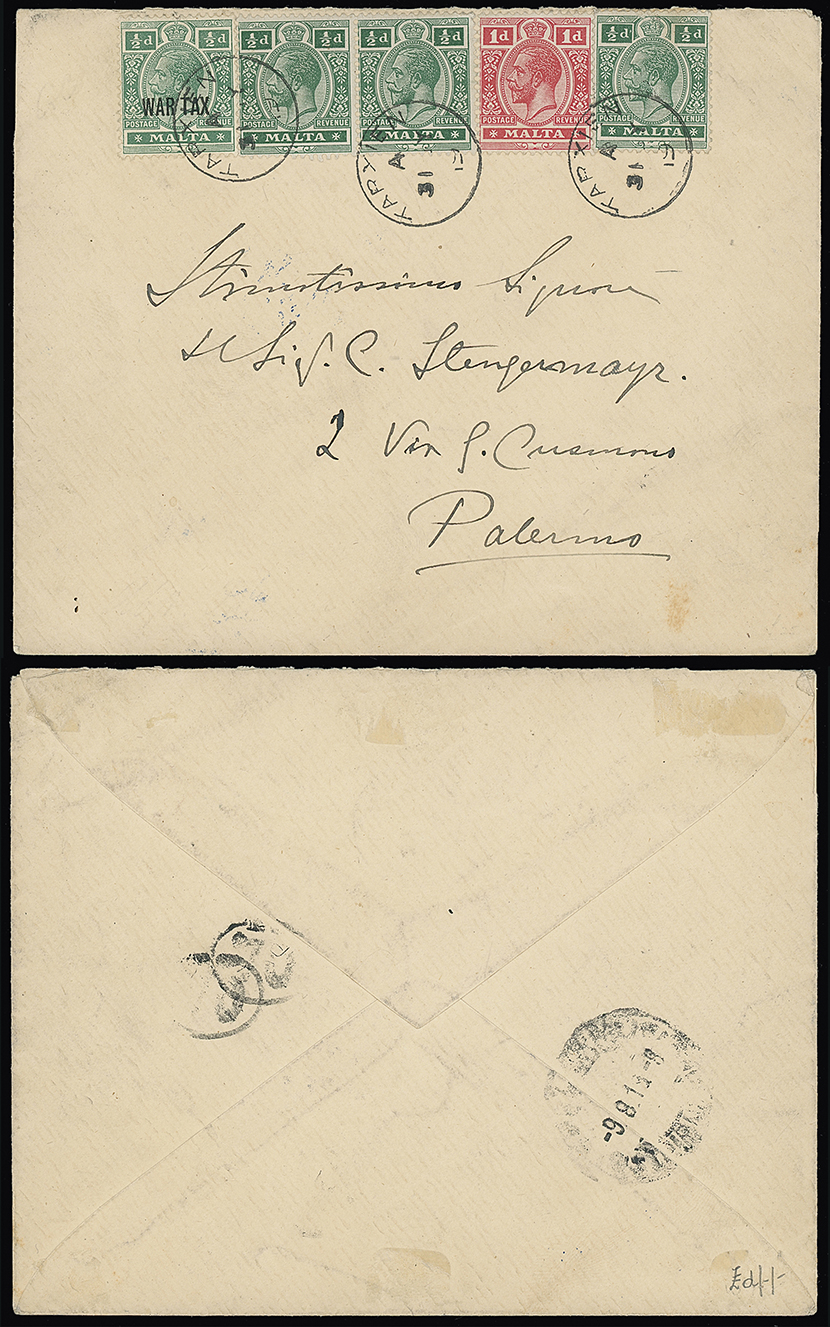 ½d ½d
WAR TAX
POSTAGE REVENUE
MALTA
½d ½d
POSTAGE REVENUE
MALTA
½d ½d
POSTAGE REVENUE
MALTA
1d 1d
POSTAGE REVENUE
MALTA
½d ½d
POSTAGE REVENUE
MALTA
TARXIEN
TARXIEN
A
31
19
TARXIEN
A
31
19
Stimatissimo Signore
Il Sig. C. Stengermayr.
2 Via G. Cusmano
Palermo
-9 8 1